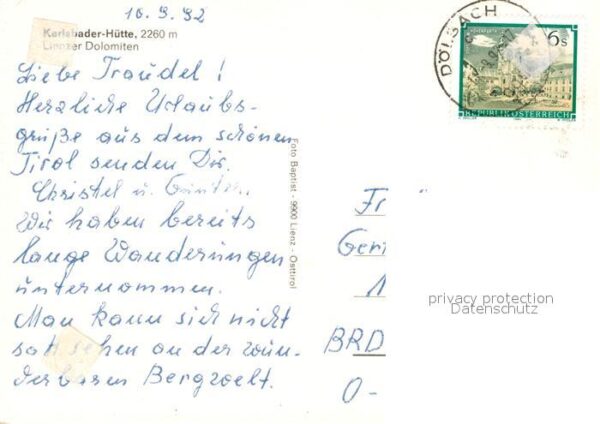 10.9.92
Karlsbader-Hütte, 2260 m
Lienzer Dolomiten
Liebe Traudel!
Herzliche Urlaubs-
grüße aus dem schönen
Tirol senden Dir
Christel u. Günter.
Wir haben bereits
lange Wanderungen
unternommen.
Man kann sich nicht
satt sehen an der wun-
derbaren Bergwelt.
Foto Baptist - 9900 Lienz - Osttirol
DÖLSACH
6s
REPUBLIK ÖSTERREICH
Fr
Ger
1
BRD
O-
privacy protection
Datenschutz